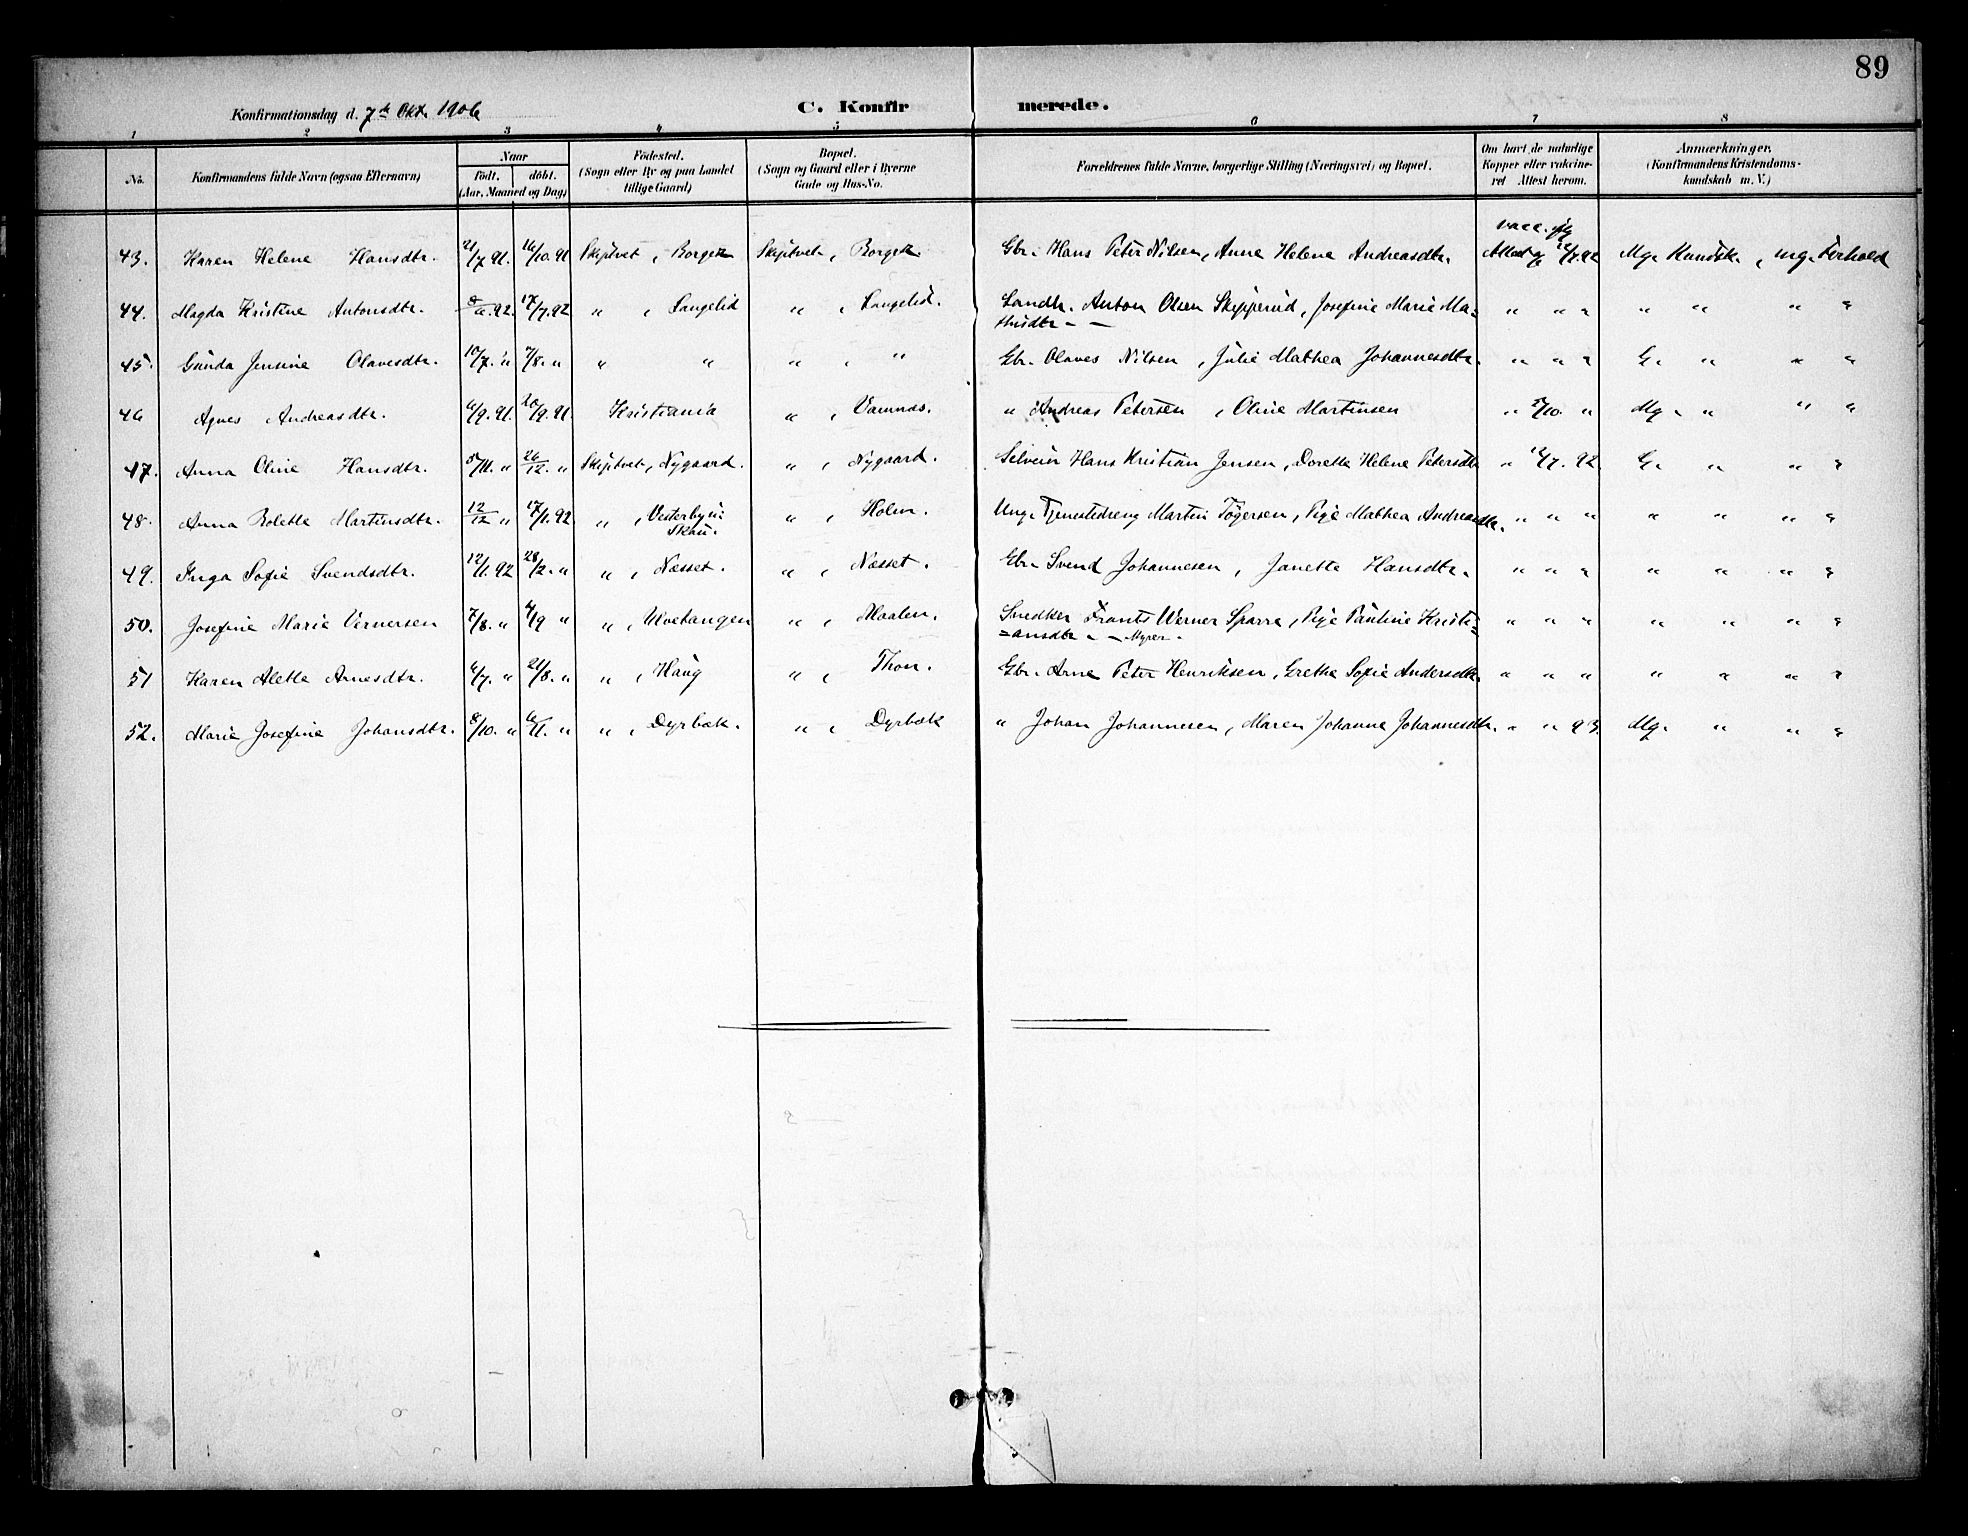 89
Konfirmationsdag d. 7de Okt. 1906 C. Konfir merede.
1 2 3 4 5 6 7 8
No. Konfirmandens fulde Navn (ogsaa Efternavn) Naar födt. döbt. (Aar, Maaned og Dag) Födested. (Sogn eller By og paa Landet tillige Gaard) Bopæl. (Sogn og Gaard eller i Byerne Gade og Hus-No. Forældrenes fulde Navne, borgerlige Stilling (Næringsvei) og Bopæl. Om havt de naturlige Kopper eller vakcineret. Attest herom. Anmærkninger. (Konfirmandens Kristendomskundskab m. V.)
43. Karen Helene Hansdtr. 21/7 91. 16/10. 91 Skiptvet, Borgek Skiptvet, Borgek. Gbr. Hans Peter Nilsen, Anna Helene Andreasdtr. vacc. Attest 92 Mg. Kundsk., mg. Forhold
44. Magda Kristine Antonsdtr. 92. 17/7. 92 " , Langelid " , Langelid. Landh. Anton Olsen Skipperud, Josefine Marie Ma=
thisdtr - - " " " " " " "
45. Gunda Jensine Olavesdtr. 10/7. " 7/8. " " " " , " Gbr. Olaves Nilsen, Julie Mathea Johannesdtr. " " " G. " " "
46 Agnes Andreasdtr. 6/9. 91. 20/9. 91. Kristiania " , Vamnæs. " Andreas Petersen, Oline Martinsen " /10. " Mg. " " "
47. Anna Oline Hansdtr. 5/11. " 26/12. " Skiptvet, Nygaard. " , Nygaard. Selveier Hans Kristian Jensen, Dorette Helene Petersdtr " /7. 92 G. " " "
48. Anna Bolette Martinsdtr. 12/12 " 17/1. 92 " , Vesterbyn: " , Holen. Ung. Tjenestedreng Martin Tögersen, Pige Mathea Andreasdtr. " " " " " " "
Skau.
49. Inga Sofie Svendsdtr. 12/1. 92 28/2. " " , Næsset. " , Næsset. Gbr. Svend Johannesen, Janette Hansdtr. " " " " " " "
50. Josefine Marie Vernersen 7/8. " 4/9 " " , Uvetangen " , Maalen. Snedker Frants Werner Sparre, Pige Pauline Kristi=
=ansdtr - - Myrer - " " " " " " "
51 Karen Alette Arnesdtr. 6/7. " 21/8. " " , Haug " , Thon. Gbr. Arne Peter Henriksen, Grethe Sofie Andersdtr. " " " " " " "
52. Marie Josefine Johansdtr. 8/10. " 6/11. " " , Dyrbæk. " , Dyrbæk " Johan Johannesen, Maren Johanna Johannesdtr. " " 93. Mg. " " "